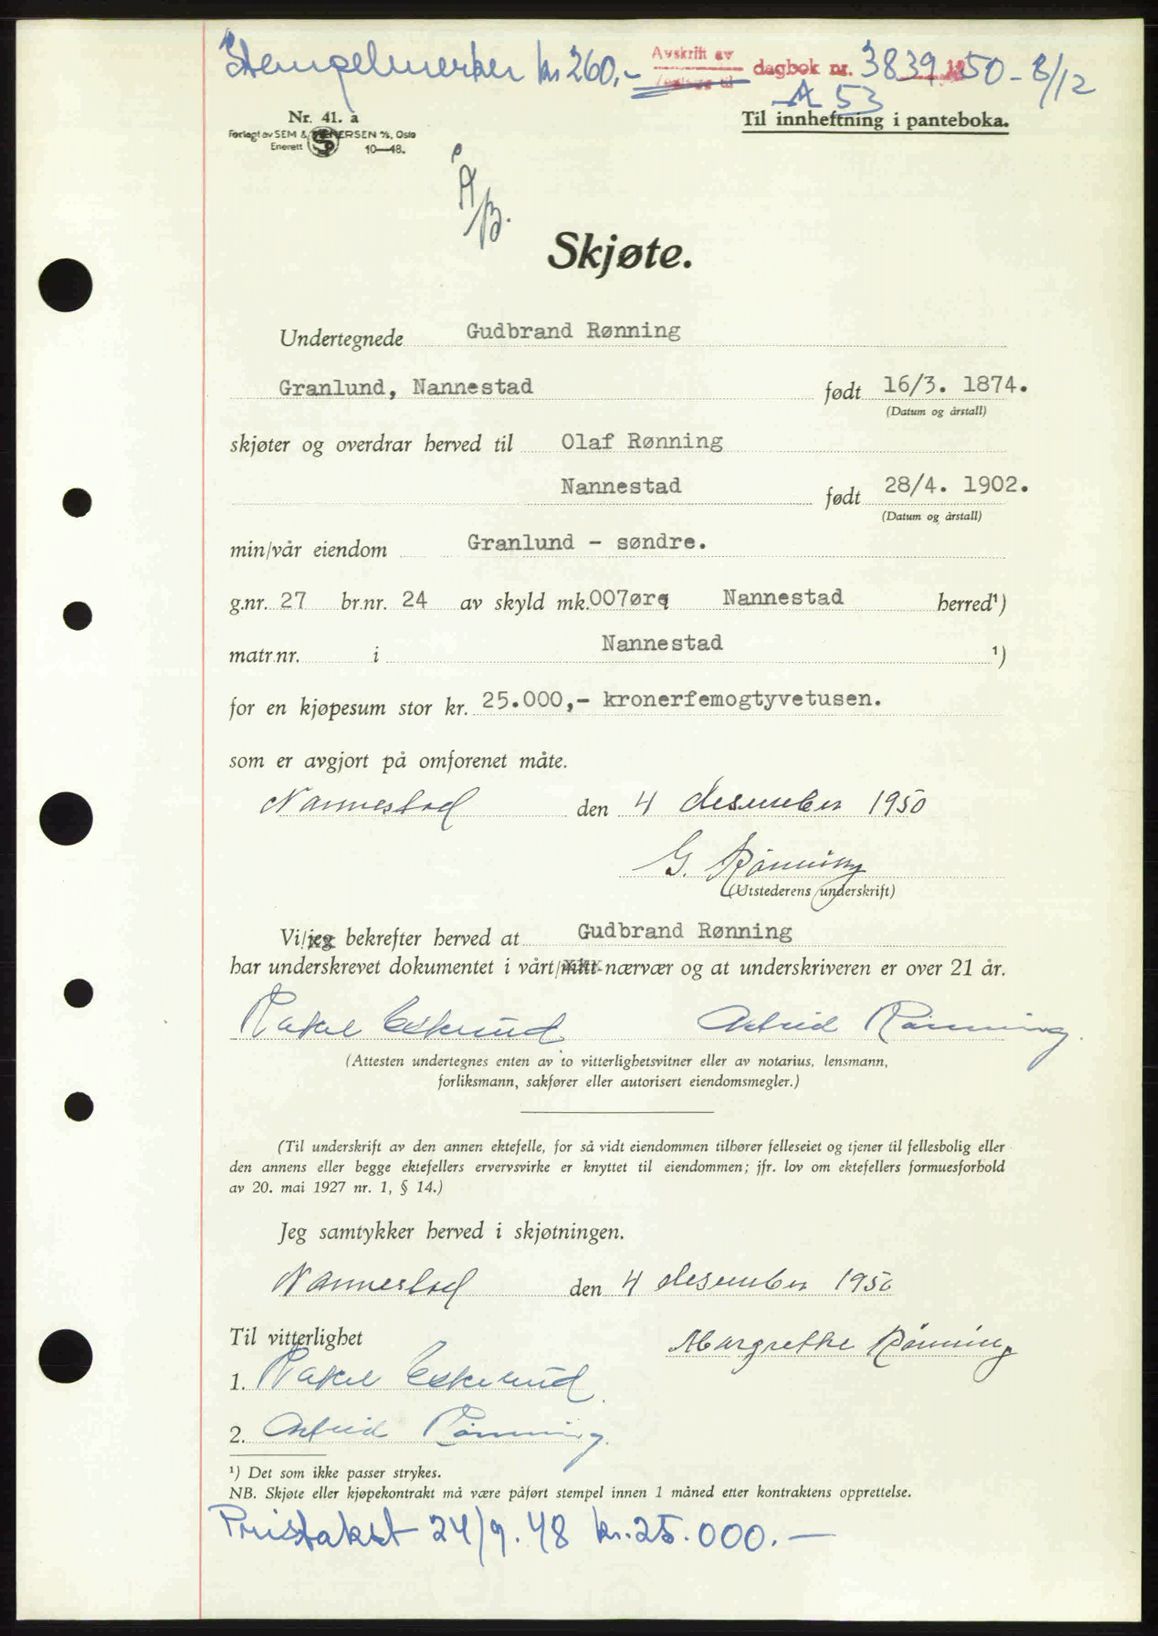 Stempelmerker kr 260.- Avskrift av dagbok nr. 3839 1950 - 8/12
A 53
Nr. 41. a
Til innheftning i panteboka.
Forlagt av SEM & STENERSEN A/S, Oslo
Enerett 10—48.
Å/B.
Skjøte.
Undertegnede Gudbrand Rønning
Granlund, Nannestad født 16/3. 1874.
(Datum og årstall)
skjøter og overdrar herved til Olaf Rønning
Nannestad født 28/4. 1902.
(Datum og årstall)
min/vår eiendom Granlund - søndre.
g.nr. 27 br.nr. 24 av skyld mk. 007ørq Nannestad herred¹)
matr.nr. i Nannestad ¹)
for en kjøpesum stor kr. 25.000,- kronerfemogtyvetusen.
som er avgjort på omforenet måte.
Nannestad den 4 desember 1950
G. Rønning
(Utstederens underskrift)
Vi/jeg bekrefter herved at Gudbrand Rønning
har underskrevet dokumentet i vårt/mitt nærvær og at underskriveren er over 21 år.
Rakel Eskerud Astrid Rønning.
(Attesten undertegnes enten av to vitterlighetsvitner eller av notarius, lensmann,
forliksmann, sakfører eller autorisert eiendomsmegler.)
(Til underskrift av den annen ektefelle, for så vidt eiendommen tilhører felleseiet og tjener til fellesbolig eller
den annens eller begge ektefellers ervervsvirke er knyttet til eiendommen; jfr. lov om ektefellers formuesforhold
av 20. mai 1927 nr. 1, § 14.)
Jeg samtykker herved i skjøtningen.
Nannestad den 4 desember 1950
Til vitterlighet Margrethe Rønning
1. Rakel Eskerud.
2. Astrid Rønning.
¹) Det som ikke passer strykes.
NB. Skjøte eller kjøpekontrakt må være påført stempel innen 1 måned etter kontraktens opprettelse.
Pristakst 24/9. 48 kr. 25.000.—